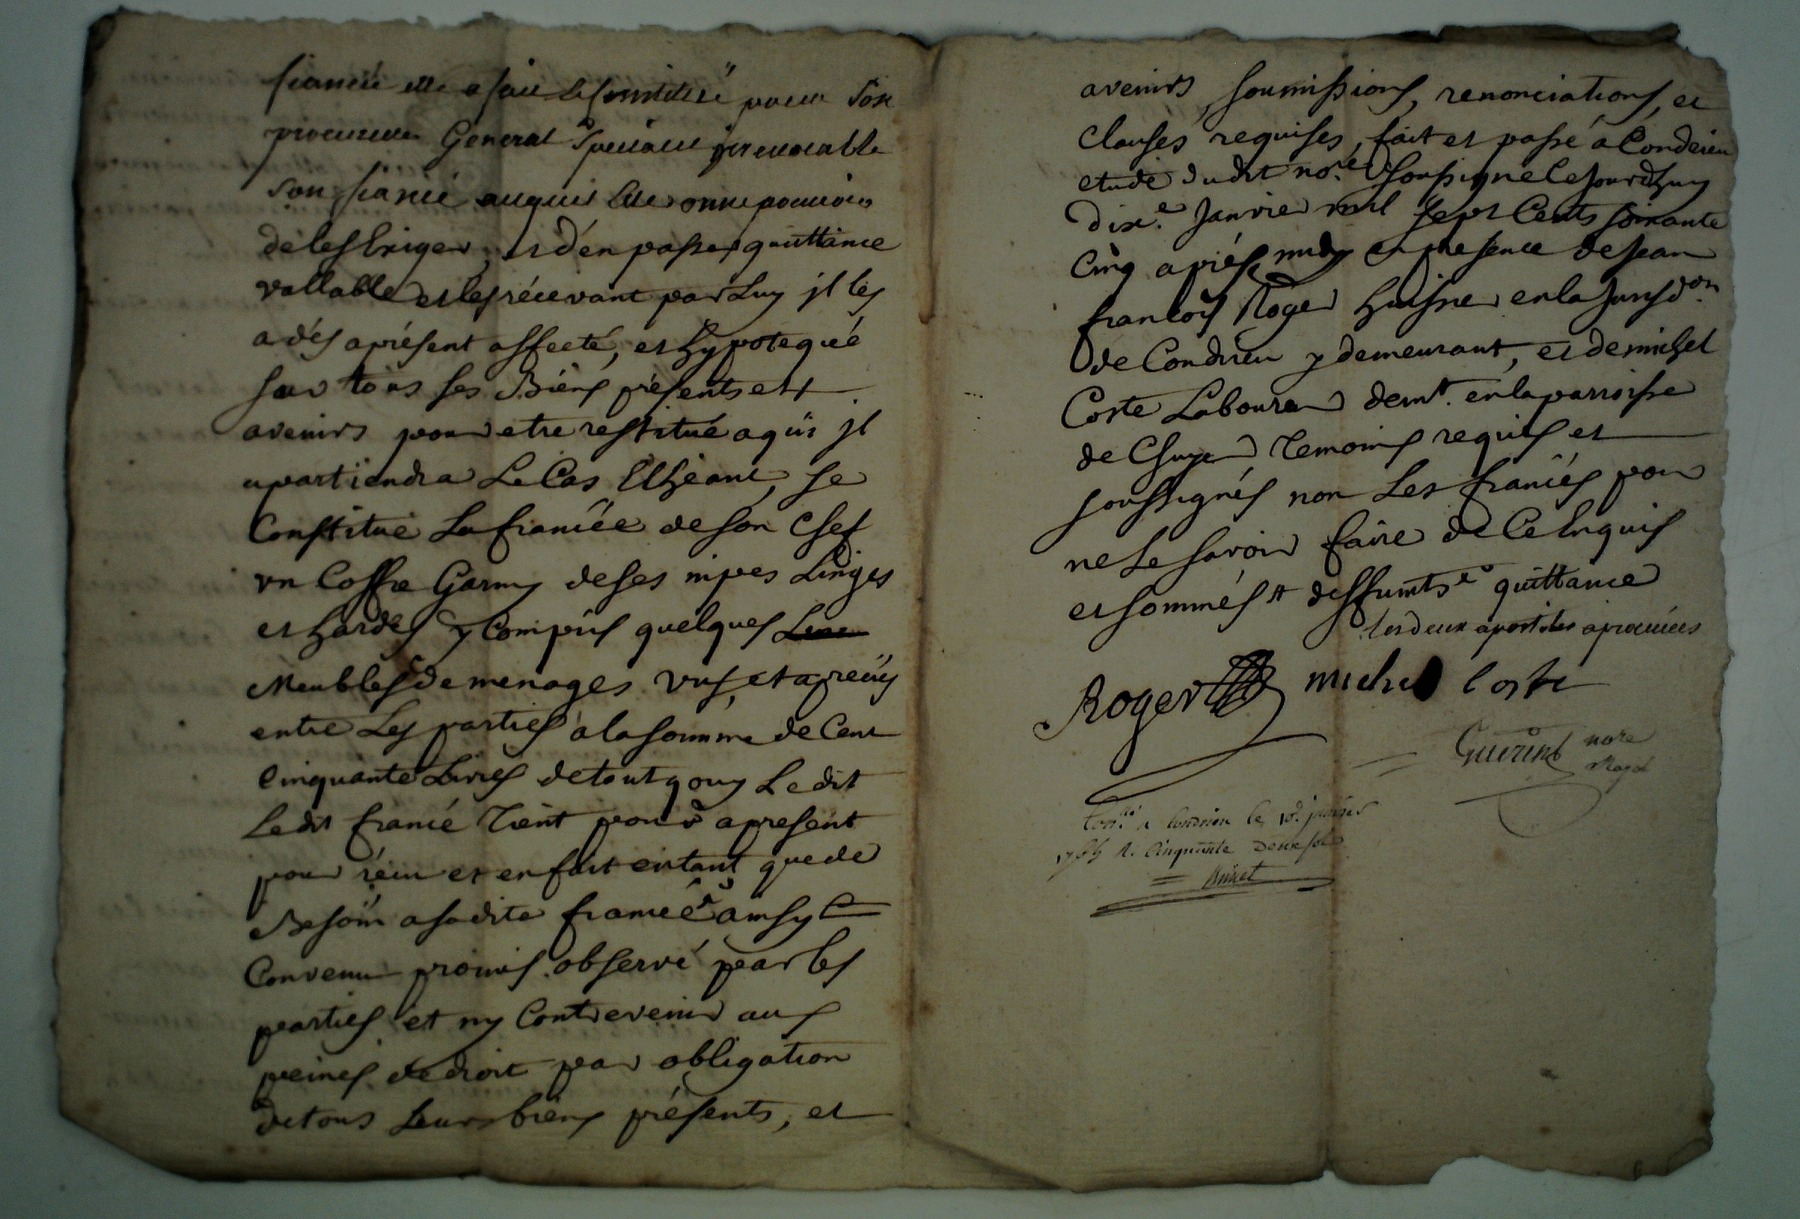 fiancée elle a fait & constitué pour son
procureur General & special irrevocable
son fiancé auquel elle donne pouvoir
de les Exiger, et d'en passer quittance
vallable et les récevant par Luy jl les
a dés aprésent affecté, et hypotequé
sur tous ses Biens présents et
avenirs pour etre restitué a qui jl
apartiendra Le Cas Echéant, se
Constitue La fiancée de son Chef
vn Coffre Garny de ses nipes Linges
et hardes y Compris quelques
Meubles de menages vus et apreciés
entre Les parties a la somme de Cent
Cinquante Livres de tout quoy Le dit
Le dit fiancé Tient pour apresent
pour réçu et en fait en tant que de
Besoin a sa dite fiancée ainsy
Convenu promis observé par les
parties et ny Contrevenir aux
peines de droit par obligation
de tous Leurs biens présents, et
avenirs, soumissions, renonciations, et
Clauses requises, fait et passé a Condrieu
etude dudit no.re soussigné Cejourdhuy
dix.e Janvier mil sept Cents soixante
Cinq aprés midy en presence de Jean
francois Roger huissier en la Jurisd.on
de Condrieu y demeurant, et de michel
Coste Laboureur dem.t en la parroisse
de Chuyer Temoins requis et
soussignés non Les fiancés pour
ne Le savoir faire de Ce Enquis
et sommés # deffunts quittance
les deux apostiles aprouvées
Roger michel Coste
Guerin nore
Royal
Con.lé a Condrieu le 10.e janvier
1765 R. Cinquante Deux sols